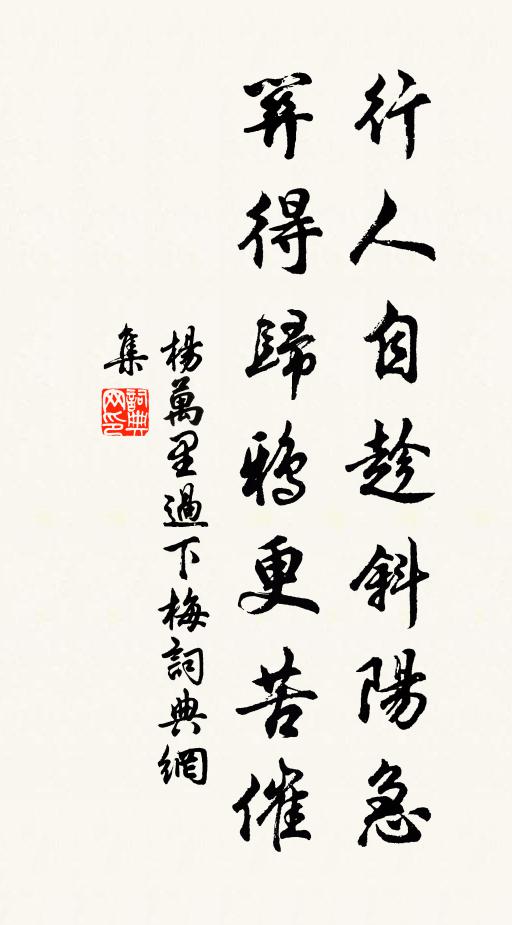 行人自趁斜陽急
關得歸鴉更苦催
楊萬里過下梅詞典網
集
詞典网印